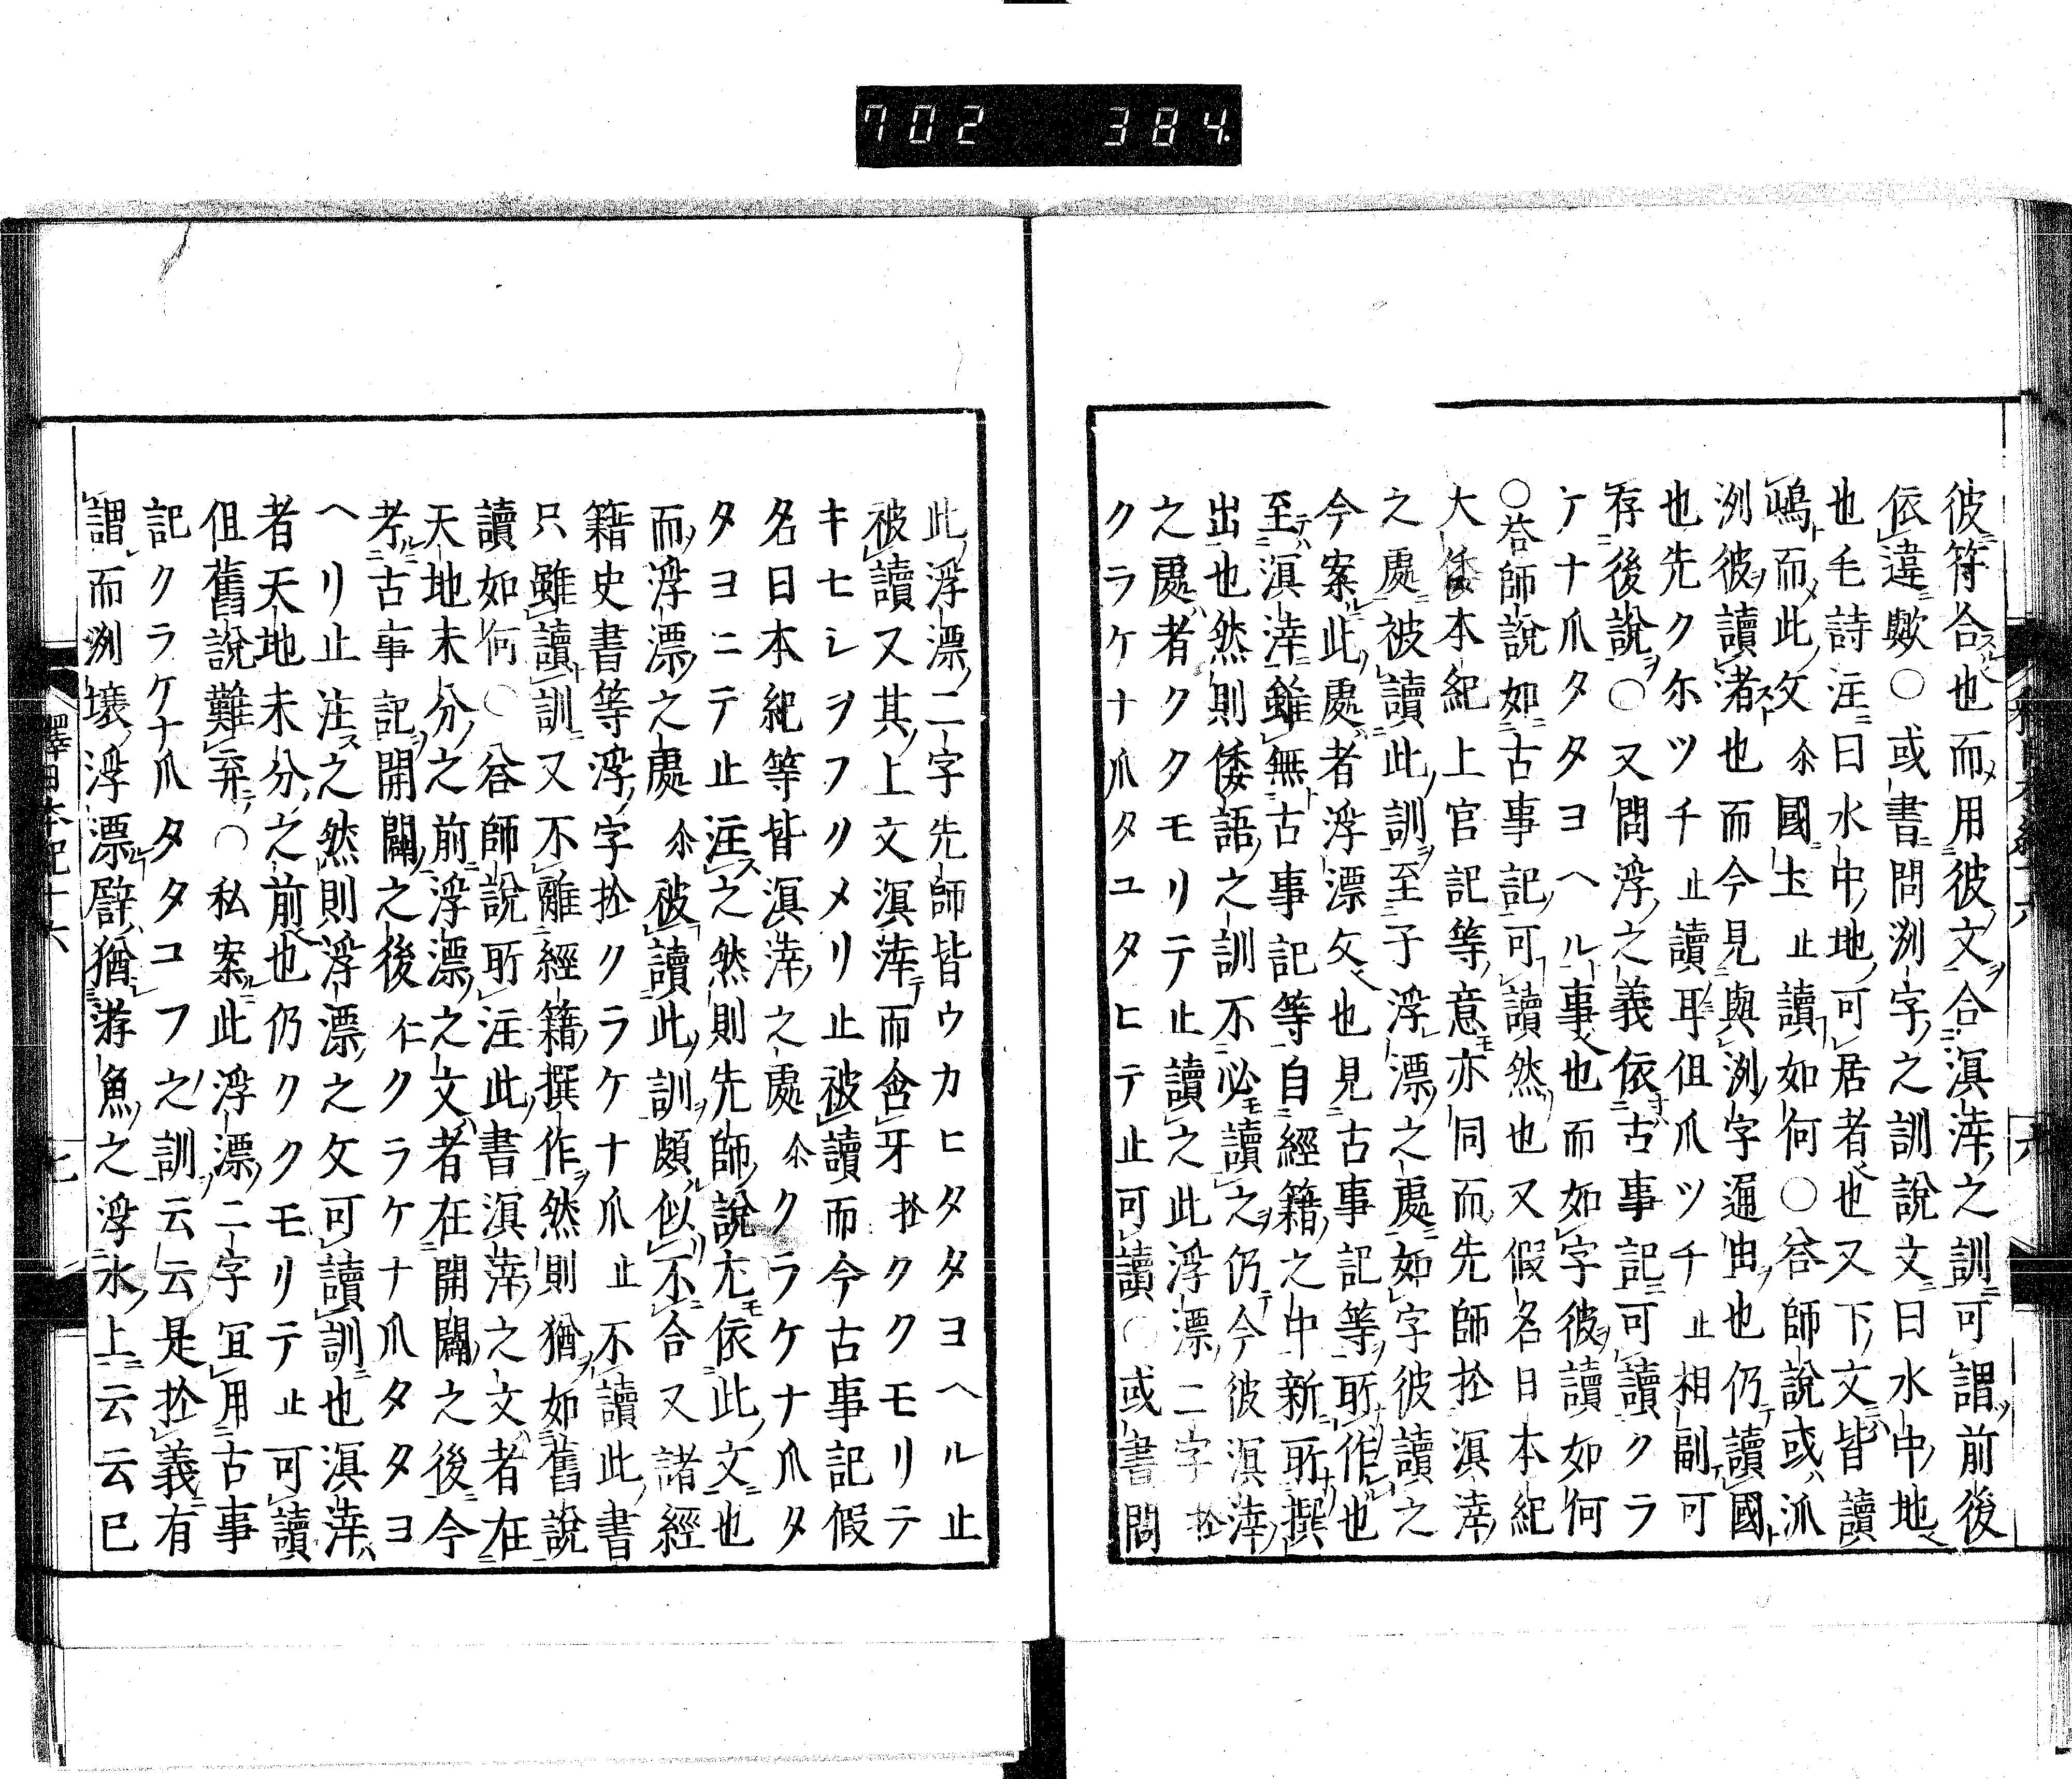 702 384
彼符合也而用彼文合溟涬之訓可謂前後
依違歟○或書問洲字之訓說文曰水中地
也毛詩注曰水中地可居者也又下文皆讀
嶋而此文尒國𡈽止讀如何○荅師說或派
洲彼讀渚也而今見與洲字通由也仍讀國
也先クホツチ止讀耳但爪ツチ止相副可
存後說○又問浮之義依古事記可讀クラ
ケナ爪タタヨヘル事也而如字彼讀如何
○荅師說如古事記可讀然也又假名日本紀
大倭本紀上官記等意亦同而先師於溟涬
之處被讀此訓至子浮漂之處如字彼讀之
今案此處者浮漂文也見古事記等所作也
至溟涬雖無古事記等自經籍之中新所撰
出也然則倭語之訓不必讀之仍今彼溟涬
之處者ククモリテ止讀之此浮漂二字於
クラケナ爪タユタヒテ止可讀○或書問
此浮漂二字先師皆ウカヒタタヨヘル止
被讀又其上文溟涬而含牙於ククモリテ
キヒレヲフリメリ止被讀而今古事記假
名日本紀等皆溟涬之處尒クラケナ爪タ
タヨニテ止注之然則先師說尤依此文也
而浮漂之處尒被讀此訓頗似不合又諸經
籍史書等浮字於クラケナ爪止不讀此書
只雖讀訓又不離經籍撰作然則猶如舊說
讀如何○荅師說所注此書溟涬之文者在
天地未分之前浮漂之文者在開闢之後今
考古事記開闢之後仁クラケナ爪タタヨ
ヘリ止注之然則浮漂之文可讀訓也溟涬
者天地未分之前也仍ククモリテ止可讀
但舊說難弃○私案此浮漂二字宜用古事
記クラケナ爪タタコフ之訓云云是於義有
謂而洲壤浮漂譬猶游魚之浮水上云云已